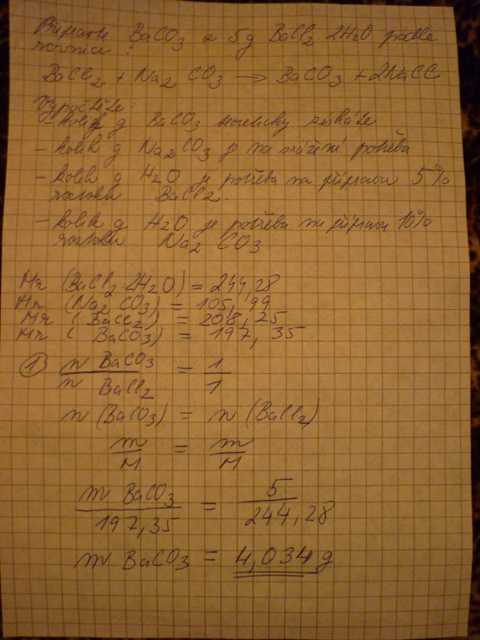 Připravte BaCO3 z 5g BaCl2 2H2O podle
rovnice :
BaCl2 + Na2 CO3 → BaCO3 + 2NaCl
Vypočtěte:
- kolik g BaCO3 teoreticky získáte
- kolik g Na2CO3 je na srážení potřeba
- kolik g H2O je potřeba na přípravu 5%
roztoku BaCl2.
- kolik g H2O je potřeba na přípravu 10%
roztoku Na2 CO3
Mr (BaCl2 2H2O) = 244,28
Mr (Na2 CO3) = 105,99
Mr ( BaCl2) = 208,25
Mr ( BaCO3) = 197,35
1 n BaCO3 / n BaCl2 = 1 / 1
n (BaCO3) = n (BaCl2)
m / M = m / M
m BaCO3 / 197,35 = 5 / 244,28
m BaCO3 = 4,034 g